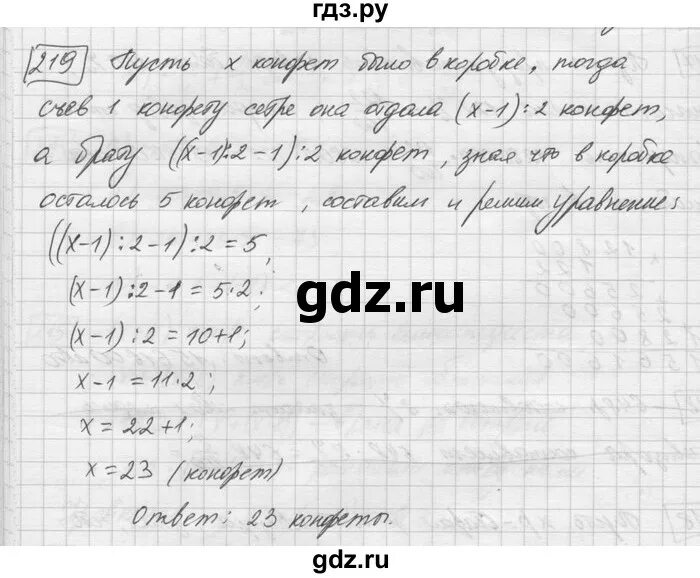 гдз.ру
219 Пусть x конфет было в коробке, тогда
съев 1 конфету сетре она отдала (x-1):2 конфет,
а брату ((x-1):2-1):2 конфет, зная что в коробке
осталось 5 конфет, составим и решим уравнение:
((x-1):2-1):2=5,
(x-1):2-1=5·2;
gdz.ru
(x-1):2=10+1;
x-1=11·2;
x=22+1;
x=23 (конфет)
Ответ: 23 конфеты.
gdz.ru